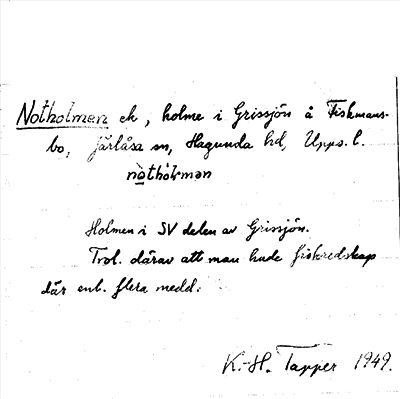 Notholmen ek, holme i Grissjön å Fiskmans-
bo, Järlåsa sn, Hagunda hd, Upps. l.
Holmen i SV delen av Grissjön.
Trol. därav att man hade fiskredskap
där enl. flera medd.
K.-H. Tapper 1949.